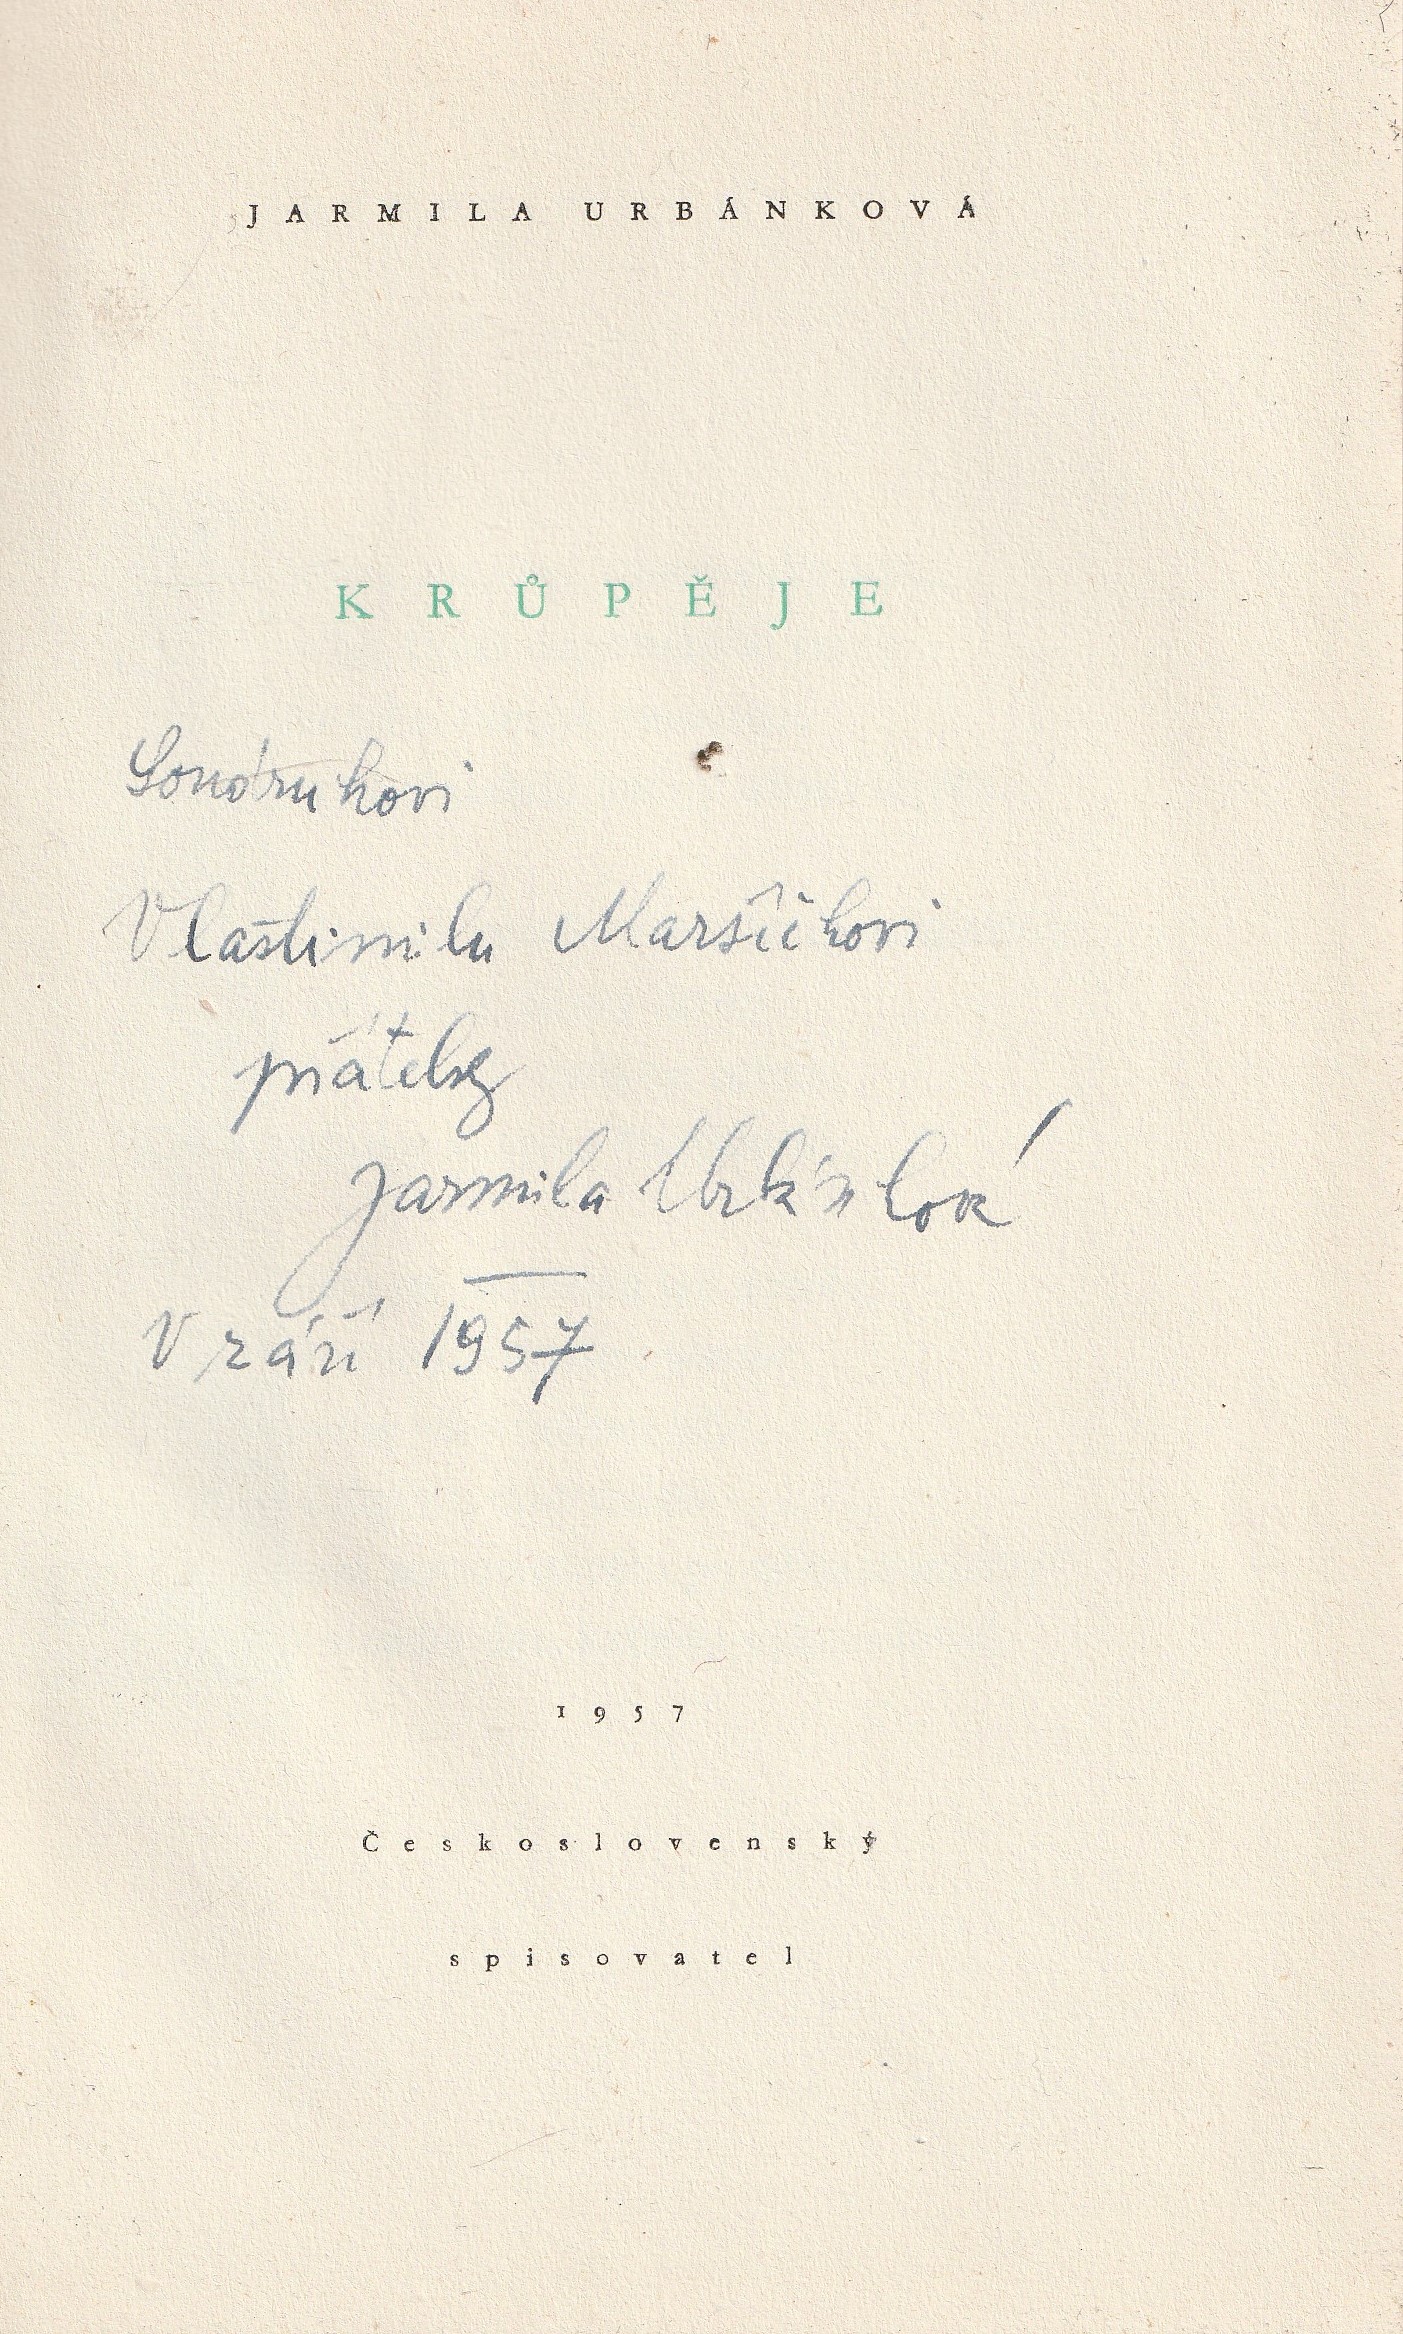 JARMILA URBÁNKOVÁ
KRŮPĚJE
Soudruhovi
Vlastimilu Maršíčkovi
přátelsky
Jarmila Urbánková
V září 1957
1957
Československý
spisovatel